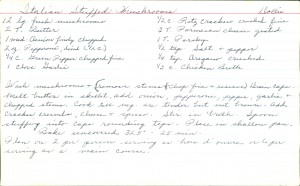 Italian Stuffed Mushrooms
12 lg fresh mushrooms
2 T. Butter
1 med Onion finely chopped
2 oz Pepperoni, diced (½ c)
¼ c. Green Pepper chopped fine
1 clove Garlic
½ c. Ritz cracker crushed fine
3 T Parmesan cheese grated
1 T. Parsley
½ tsp. Salt + pepper
¼ tsp Oregano crushed
½ c Chicken Broth
Wash mushrooms + remove stems (chop fine + reserve) Drain caps.
Melt butter in skillet, add onion, pepperoni, pepper, garlic +
chopped stems. Cook til veg. are tender but not brown. Add
cracker crumbs, cheese + spices. Stir in broth. Spoon
stuffing into caps rounding tops. Place in shallow pan.
Bake uncovered 325° - 25 min.
Plan on 2 per person serving as hors d'oeuvres, or 6 per
serving as a main course.